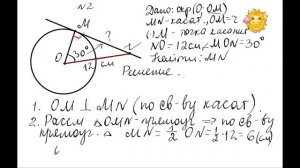 N2
Дано: окр(O; OM)
MN - касат., OM = ?
(·) M - точка касания
NO = 12см ∠MON = 30°
Найти: MN
Решение
M
?
30°
O
12 см
N
1. OM ⊥ MN (по св-ву касат.)
2. Рассм △OMN - прямоуг ⇒ по св-ву
прямоуг. △ MN = 1/2 ON = 1/2 · 12 = 6 (см)